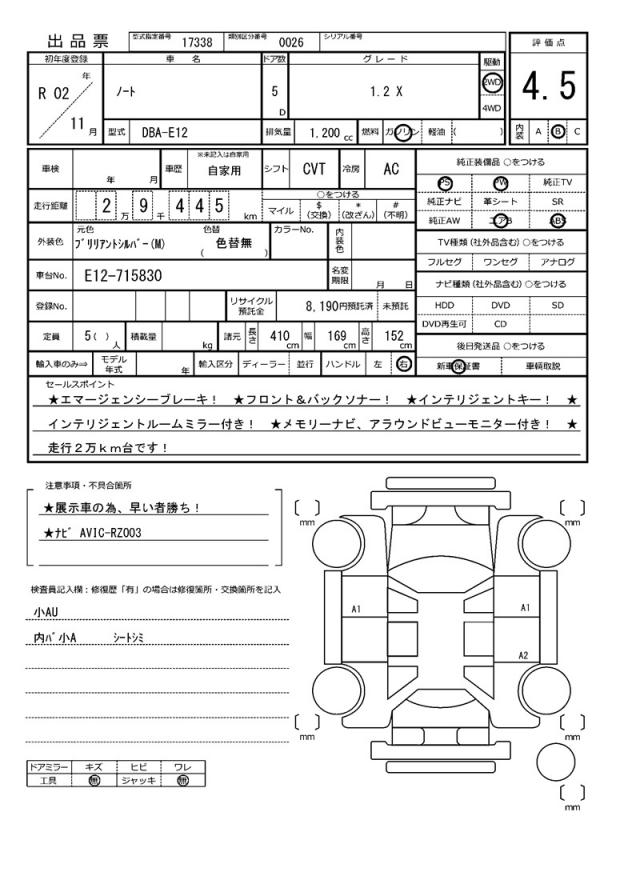 出品票 型式指定番号 17338 類別区分番号 0026 シリアル番号
初年度登録 車名 ドア数 グレード 駆動 評価点
R 02 年 ノート 5 D 1.2 X 2WD 4WD 4.5
11 月 型式 DBA-E12 排気量 1.200 cc 燃料 ガソリン 軽油 ( ) 内装 A B C
車検 年 月 車歴 ※未記入は自家用 自家用 シフト CVT 冷房 AC 純正装備品 ○をつける
PS PW 純正TV
走行距離 2 万 9 千 4 4 5 km ○をつける
マイル $(交換) *(改ざん) #(不明)
純正ナビ 革シート SR
純正AW エアB ABS
外装色 元色 ブリリアントシルバー(M) 色替 ( 色替無 ) カラーNo. 内装色
TV種類(社外品含む) ○をつける
フルセグ ワンセグ アナログ
車台No. E12-715830 名変期限 月 日
ナビ種類(社外品含む) ○をつける
登録No. リサイクル預託金 8,190円預託済 未預託
HDD DVD SD
DVD再生可 CD
定員 5( ) 人 積載量 kg 諸元 長さ 410 cm 幅 169 cm 高さ 152 cm
後日発送品 ○をつける
輸入車のみ⇒ モデル年式 年 輸入区分 ディーラー 並行 ハンドル 左 右
新車保証書 車輌取説
セールスポイント
★エマージェンシーブレーキ! ★フロント&バックソナー! ★インテリジェントキー! ★
インテリジェントルームミラー付き! ★メモリーナビ、アラウンドビューモニター付き! ★
走行2万km台です!
注意事項・不具合箇所
★展示車の為、早い者勝ち!
★ナビ AVIC-RZ003
検査員記入欄:修復歴「有」の場合は修復箇所・交換箇所を記入
小AU
内バ小A シートシミ
ドアミラー キズ ヒビ ワレ
工具 無 ジャッキ 無
mm mm
A1 A1
A2
mm mm
mm